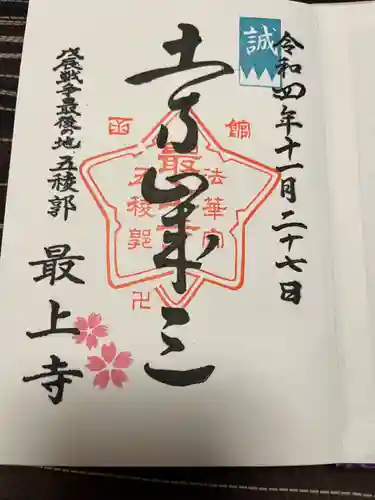 誠
令和四年十一月二十七日
函館
最上寺
法華宗
五稜郭
卍
土方歳三
戊辰戦争最後の地 五稜郭
最上寺